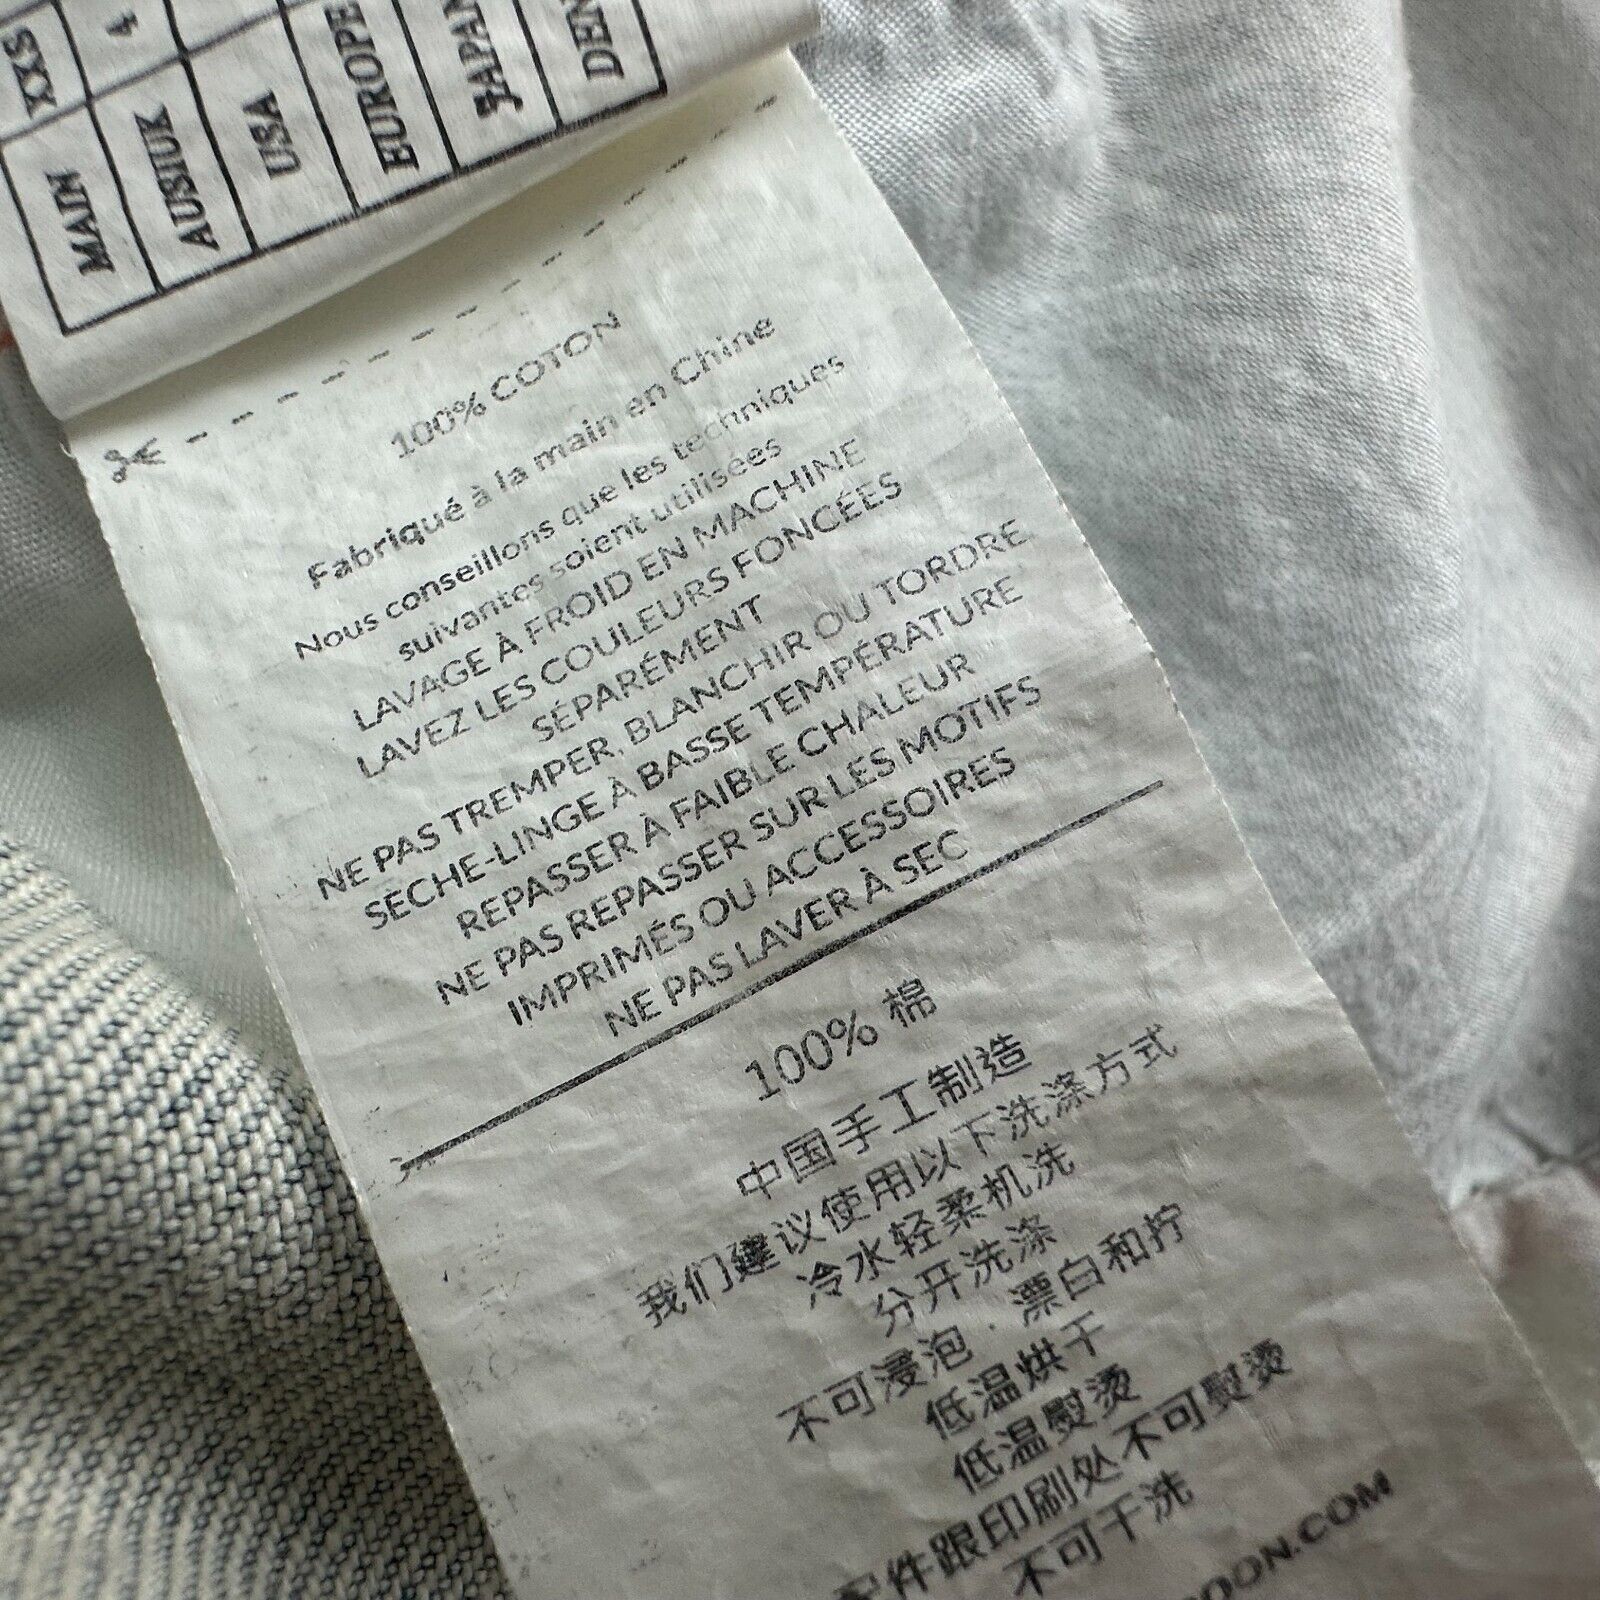 MAIN XXS
AUS|UK 4
USA
EUROPE
JAPAN
100% COTON
Fabriqué à la main en Chine
Nous conseillons que les techniques
suivantes soient utilisées
LAVAGE À FROID EN MACHINE
LAVEZ LES COULEURS FONCÉES
SÉPARÉMENT
NE PAS TREMPER, BLANCHIR OU TORDRE
SÈCHE-LINGE À BASSE TEMPÉRATURE
REPASSER À FAIBLE CHALEUR
NE PAS REPASSER SUR LES MOTIFS
IMPRIMÉS OU ACCESSOIRES
NE PAS LAVER À SEC
100% 棉
中国手工制造
我们建议使用以下洗涤方式
冷水轻柔机洗
分开洗涤
不可浸泡．漂白和拧
低温烘干
低温熨烫
件跟印刷处不可熨烫
不可干洗